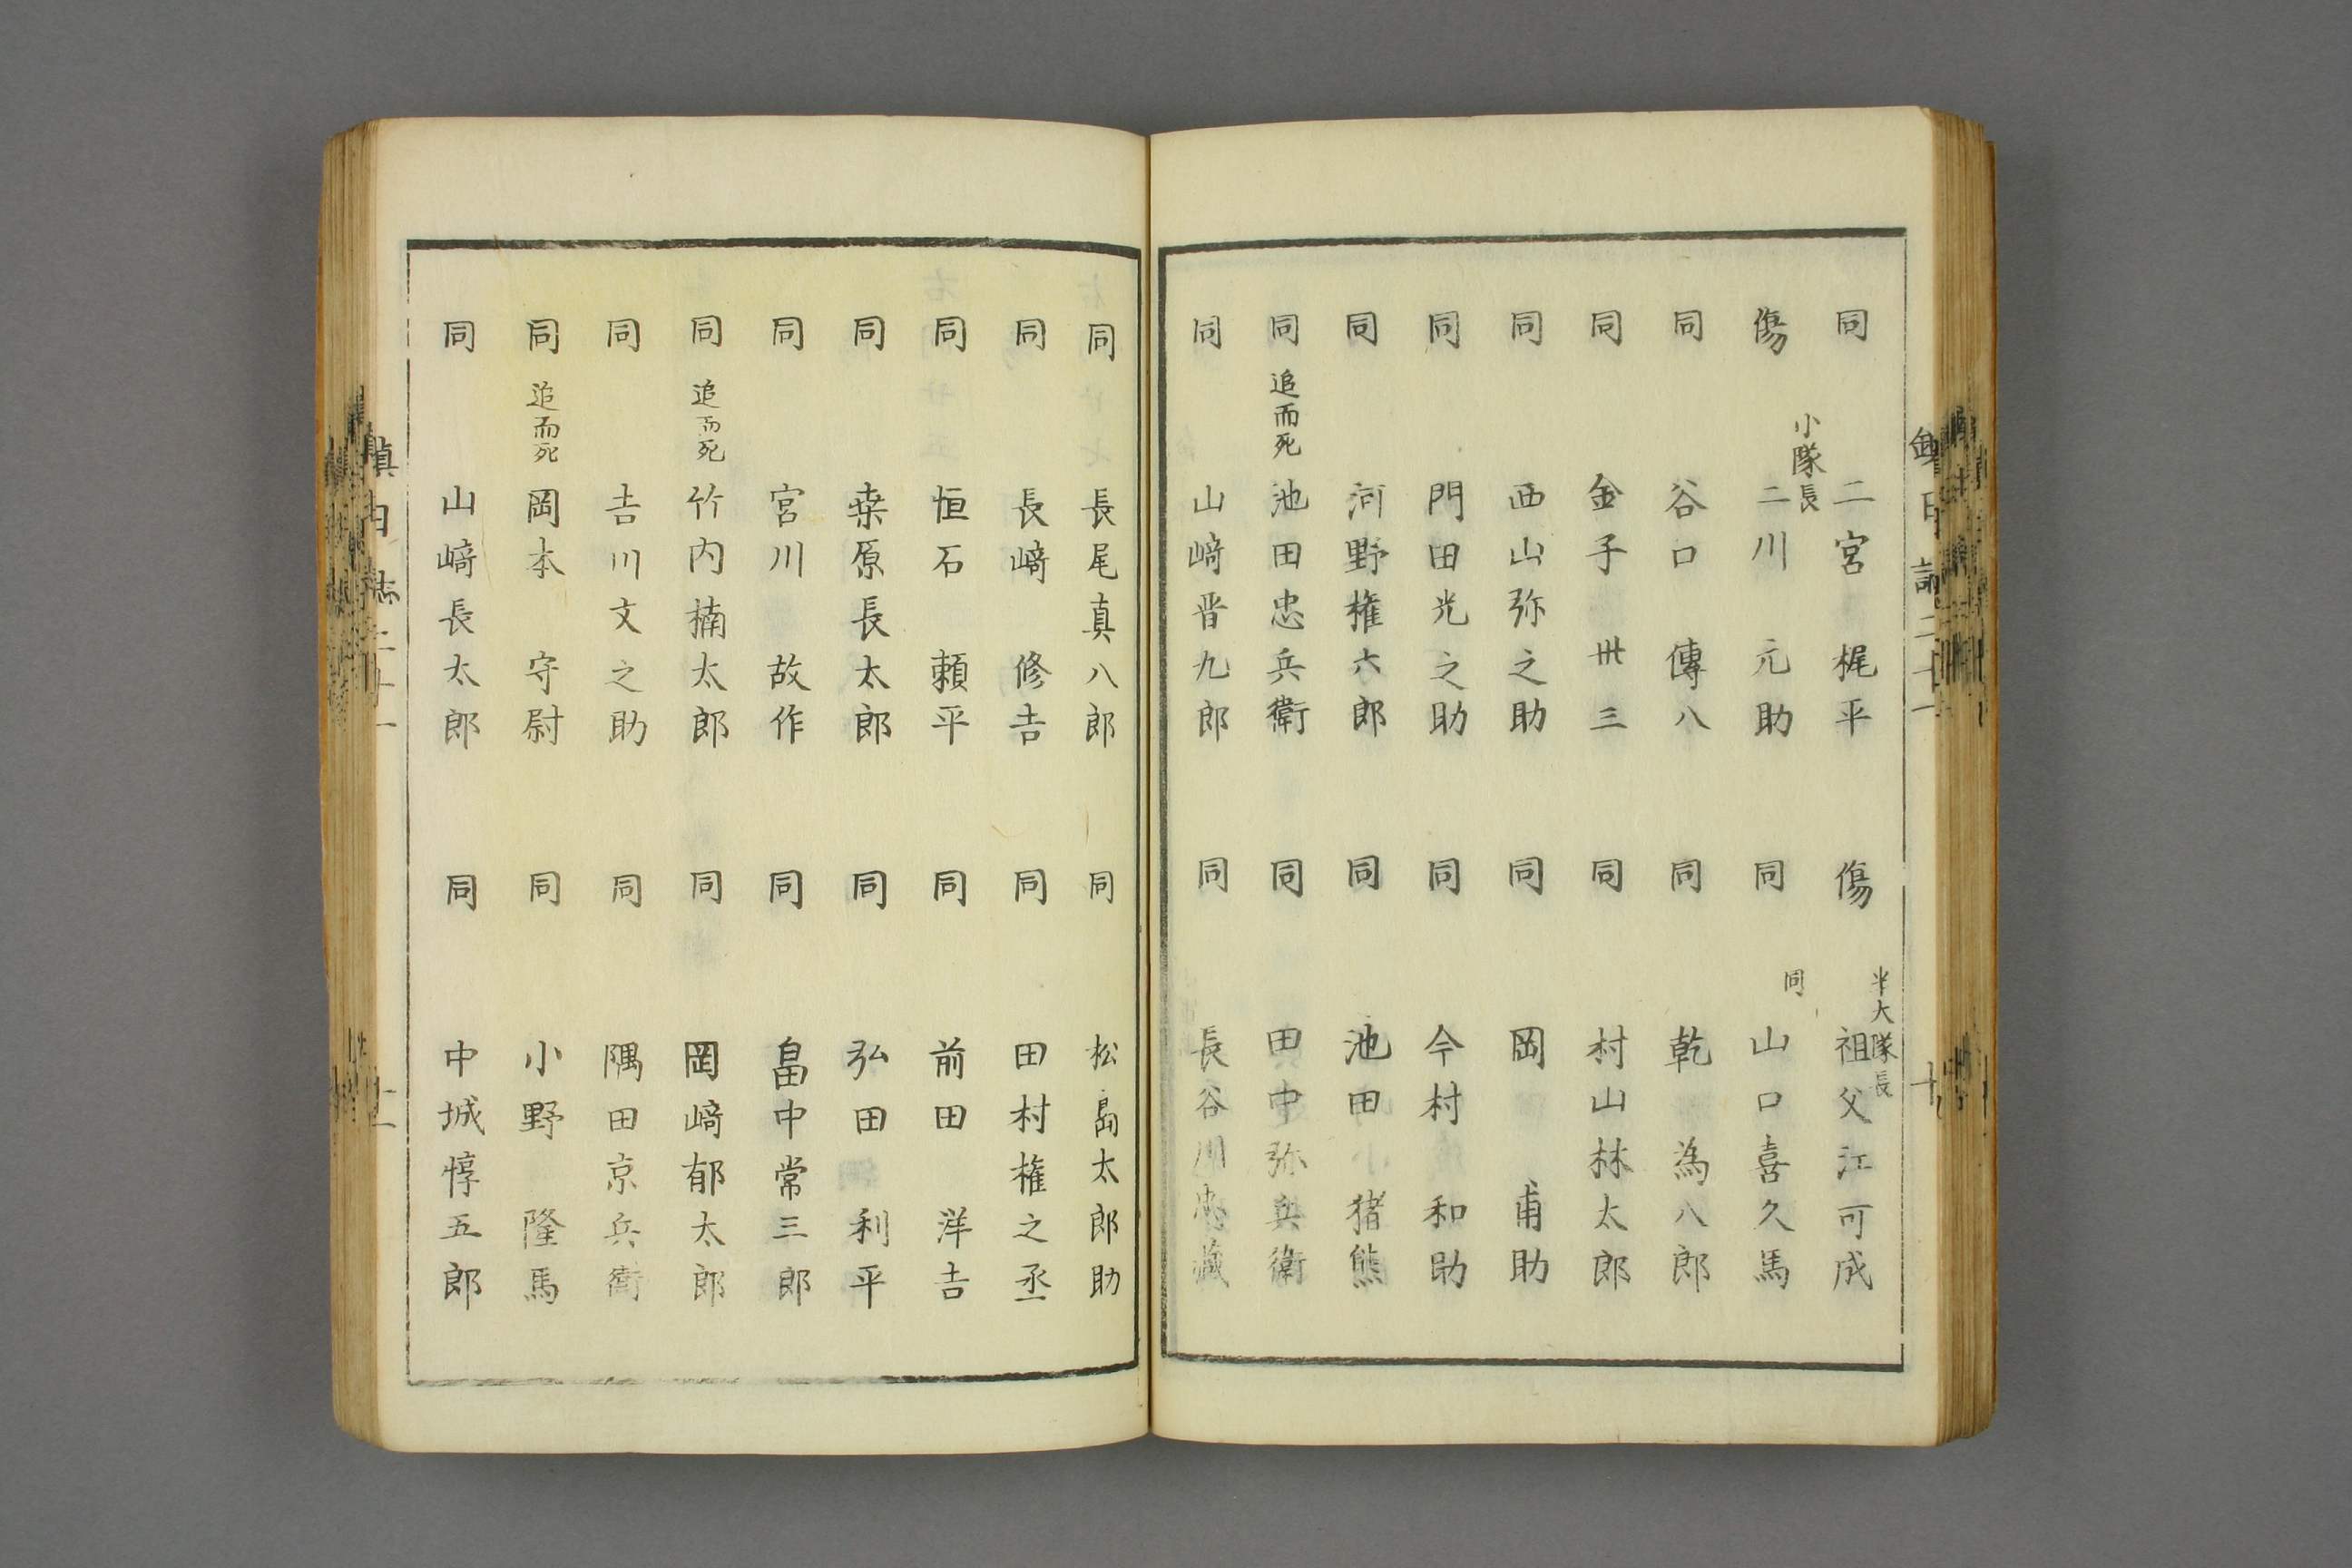 同 二宮梶平
傷 半大隊長 祖父江可成
傷 小隊長 二川元助
同 同 山口喜久馬
同 谷口傳八
同 乾為八郎
同 金子卅三
同 村山林太郎
同 西山弥之助
同 岡甫助
同 門田光之助
同 今村和助
同 河野権六郎
同 池田猪熊
同 追而死 池田忠兵衛
同 田中弥兵衛
同 山﨑晋九郎
同 長谷川忠藏
同 長尾真八郎
同 松島太郎助
同 長﨑修吉
同 田村権之丞
同 恒石頼平
同 前田洋吉
同 桒原長太郎
同 弘田利平
同 宮川故作
同 畠中常三郎
同 追而死 竹内楠太郎
同 岡﨑郁太郎
同 吉川文之助
同 隅田京兵衛
同 追而死 岡本守尉
同 小野隆馬
同 山﨑長太郎
同 中城惇五郎